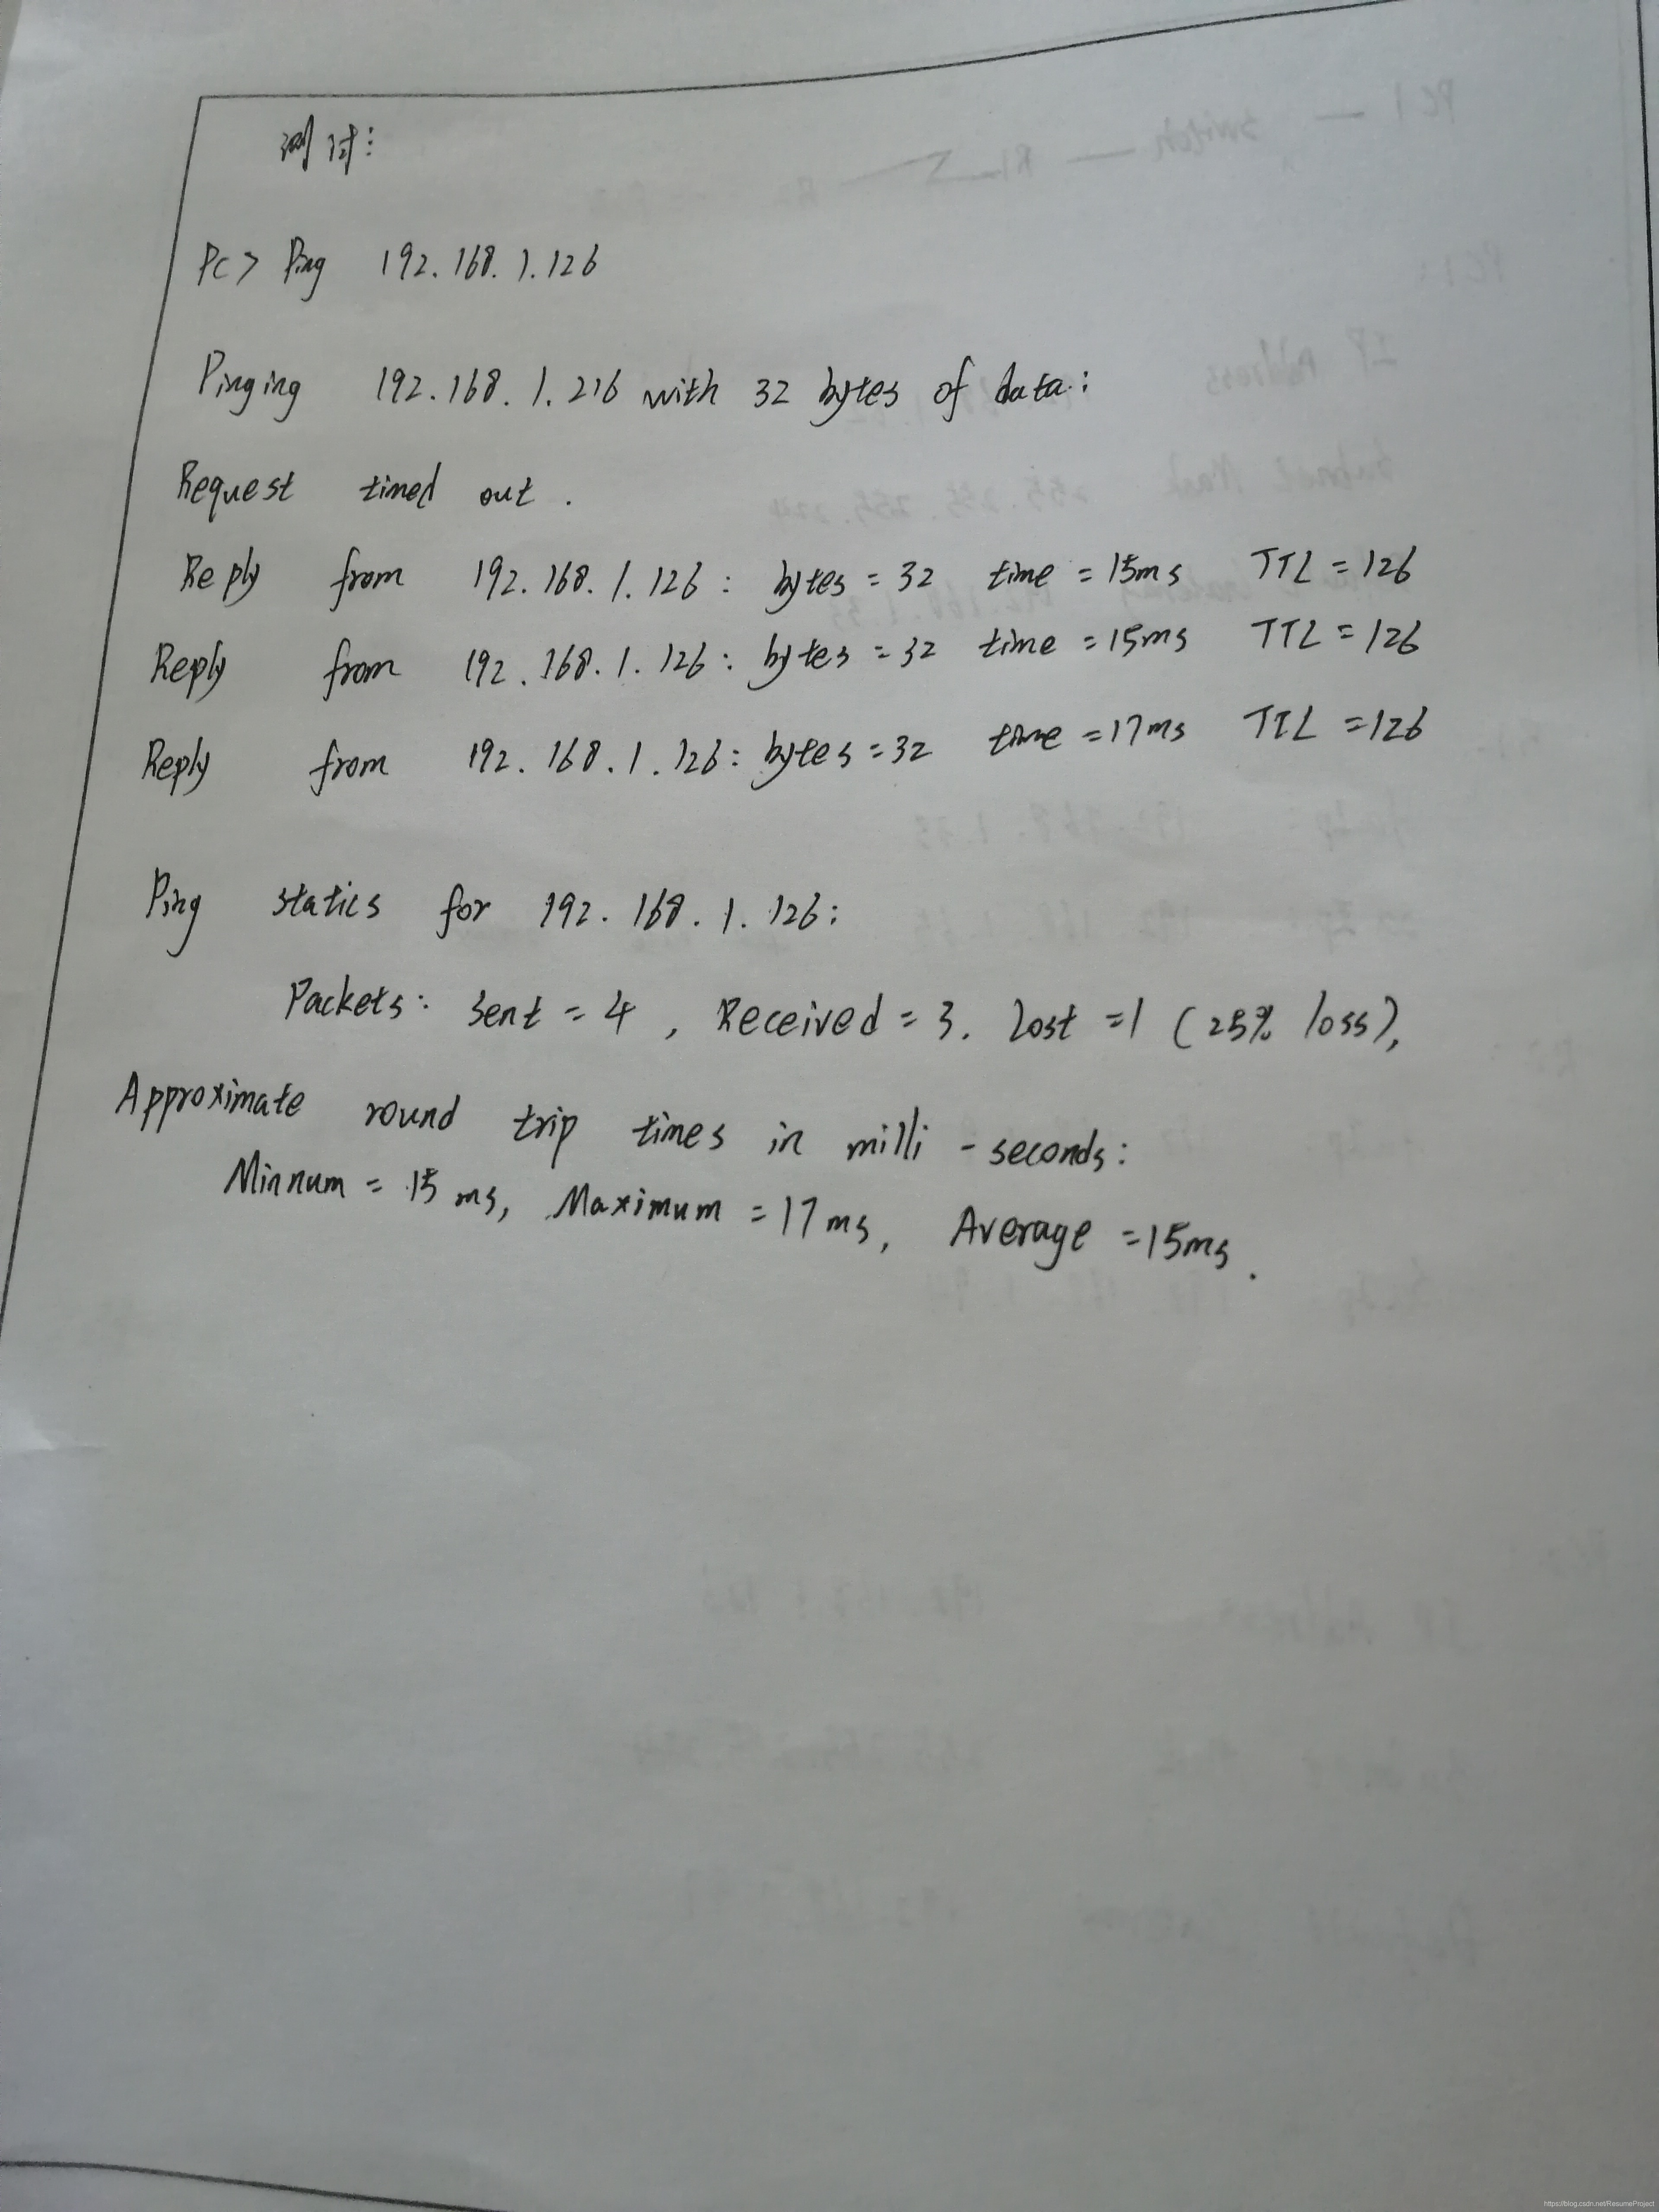 测试:
PC> Ping 192.168.1.126
Pinging 192.168.1.216 with 32 bytes of data:
Request timed out.
Reply from 192.168.1.126: bytes=32 time=15ms TTL=126
Reply from 192.168.1.126: bytes=32 time=15ms TTL=126
Reply from 192.168.1.126: bytes=32 time=17ms TTL=126
Ping statics for 192.168.1.126:
Packets: Sent=4, Received=3. Lost=1 (25% loss),
Approximate round trip times in milli-seconds:
Minnum=15ms, Maximum=17ms, Average=15ms.
https://blog.csdn.net/ResumeProject